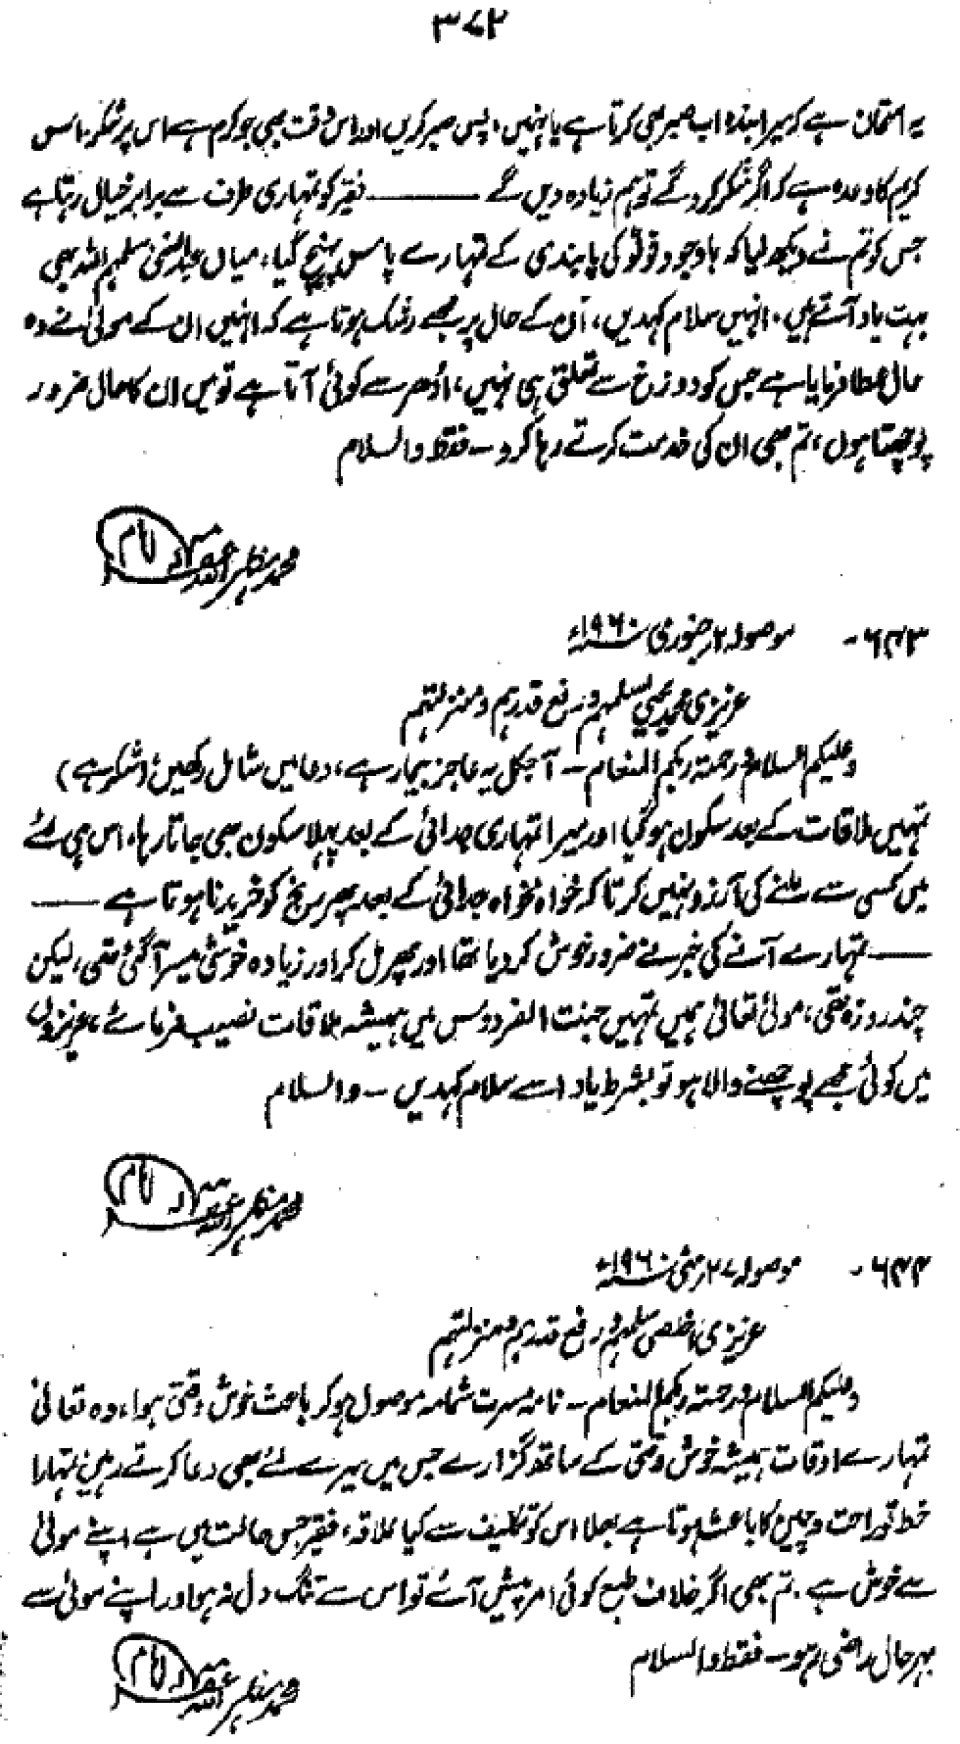 ۳۷۲
یہ امتحان ہے کہ میرا بندہ اب صبر بھی کرتا ہے یا نہیں، پس صبر کریں اور اس وقت بھی جو کرم ہے اس پر شکر، اس
کریم کا وعدہ ہے کہ اگر شکر کرو گے تو ہم زیادہ دیں گے ——— فقیر کو تمہاری طرف سے برابر خیال رہتا ہے
جس کو تم نے دیکھ لیا کہ باوجود فوٹو کی پابندی کے تمہارے پاس پہنچ گیا، میاں عبدالغنی سلمہم اللہ بھی
بہت یاد آتے ہیں، انہیں سلام کہدیں، اُن کے حال پر مجھے رشک ہوتا ہے کہ انہیں ان کے مولیٰ نے وہ
حال عطا فرمایا ہے جس کو دوزخ سے تعلق ہی نہیں، اُدھر سے کوئی آتا ہے تو میں ان کا حال ضرور
پوچھتا ہوں، تم بھی ان کی خدمت کرتے رہا کرو۔ فقط والسلام
محمد مظہر اللہ
امام
۶۴۳۔ موصولہ ۲؍جنوری ۱۹۶۰ء
عزیزی محمد یحییٰ سلمہم و رفع قدرہم و منزلتہم
وعلیکم السلام ورحمتہ ربکم المنعام۔ آجکل یہ عاجز بیمار ہے، دعا میں شامل رکھیں (شکر ہے)
تمہیں ملاقات کے بعد سکون ہو گیا اور میرا تمہاری جدائی کے بعد پہلا سکون بھی جاتا رہا، اس ہی لئے
میں کسی سے ملنے کی آرزو نہیں کرتا کہ خواہ نخواہ جدائی کے بعد پھر رنج کو خریدنا ہوتا ہے ——
—— تمہارے آنے کی خبر نے ضرور خوش کر دیا تھا اور پھر مل کر اور زیادہ خوشی میسر آگئی تھی، لیکن
چند روزہ تھی، مولیٰ تعالیٰ ہمیں تمہیں جنت الفردوس میں ہمیشہ ملاقات نصیب فرمائے، عزیزوں
میں کوئی مجھے پوچھنے والا ہو تو بشرط یاد اسے سلام کہدیں۔ والسلام
محمد مظہر اللہ
امام
۶۴۴۔ موصولہ ۲۷؍مئی ۱۹۶۰ء
عزیزی اخلصی سلمہم و رفع قدرہم و منزلتہم
وعلیکم السلام ورحمتہ ربکم المنعام۔ نامہ مسرت شمامہ موصول ہو کر باعث خوش وقتی ہوا، وہ تعالیٰ
تمہارے اوقات ہمیشہ خوش وقتی کے ساتھ گزارے جس میں میرے لئے بھی دعا کرتے رہیں، تمہارا
خط تو راحت و چین کا باعث ہوتا ہے بھلا اس کو تکلیف سے کیا علاقہ، فقیر جس حالت میں ہے اپنے مولیٰ
سے خوش ہے، تم بھی اگر خلاف طبع کوئی امر پیش آئے تو اس سے تنگ دل نہ ہو اور اپنے مولیٰ سے
بہر حال راضی رہو۔ فقط والسلام
محمد مظہر اللہ
امام